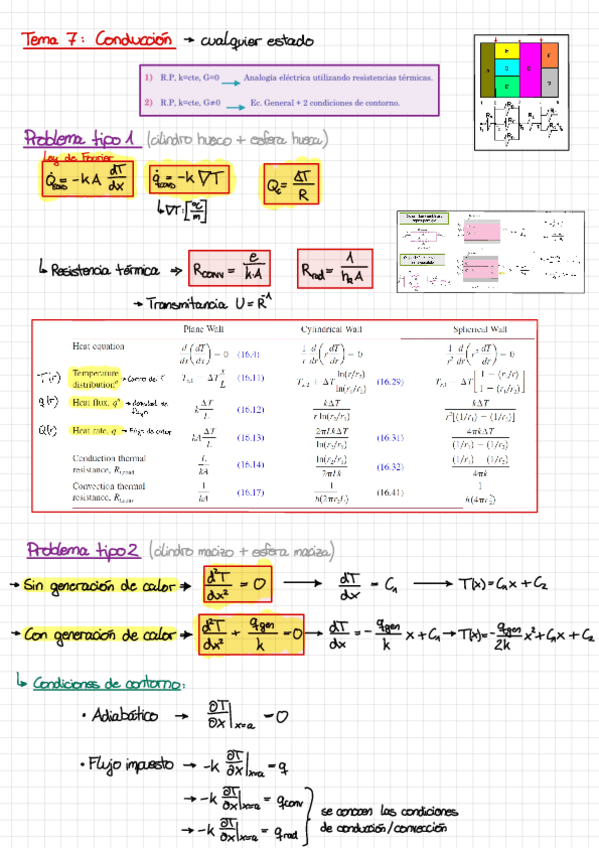 Tema 7: Conducción → cualquier estado
1) R.P, k=cte, G=0 → Analogía eléctrica utilizando resistencias térmicas.
2) R.P, k=cte, G≠0 → Ec. General + 2 condiciones de contorno.
Problema tipo 1 (cilindro hueco + esfera hueca)
Ley de Fourier
= -k A dT/dx
= -k ∇T
= ΔT/R
↳ ∇T: [ºC/m]
↳ Resistencia térmica ⇒ R_conv = e/(k·A)
R_rad = 1/(h_R A)
→ Transmitancia U = R⁻¹
Plane Wall Cylindrical Wall Spherical Wall
Heat equation d/dx (dT/dx) = 0 (16.4) 1/r d/dr (r dT/dr) = 0 1/r² d/dr (r² dT/dr) = 0
T(r) Temperature distribution (16.11) (16.29)
q(r) Heat flux, q" → densidad de flujo k ΔT/L (16.12) kΔT/(r ln(r₂/r₁)) kΔT/(r²[(1/r₁) − (1/r₂)])
Q(r) Heat rate, q → Flujo de calor kA ΔT/L (16.13) 2πLkΔT/ln(r₂/r₁) (16.31) 4πkΔT/((1/r₁) − (1/r₂))
Conduction thermal resistance, L/kA (16.14) ln(r₂/r₁)/2πLk (16.32) ((1/r₁) − (1/r₂))/4πk
Convection thermal resistance, 1/hA (16.17) (16.41)
Problema tipo 2 (cilindro macizo + esfera maciza)
→ Sin generación de calor → d²T/dx² = 0 → dT/dx = C₁ → T(x) = C₁x + C₂
→ Con generación de calor → d²T/dx² + q_gen/k = 0 → dT/dx = - q_gen/k x + C₁ → T(x) = - q_gen/2k x² + C₁x + C₂
↳ Condiciones de contorno:
· Adiabático → ∂T/∂x |x=a = 0
· Flujo impuesto → -k ∂T/∂x |x=a = q
→ -k ∂T/∂x |x=a = q_conv
→ -k ∂T/∂x |x=a = q_rad
se conocen las condiciones
de conducción/convección